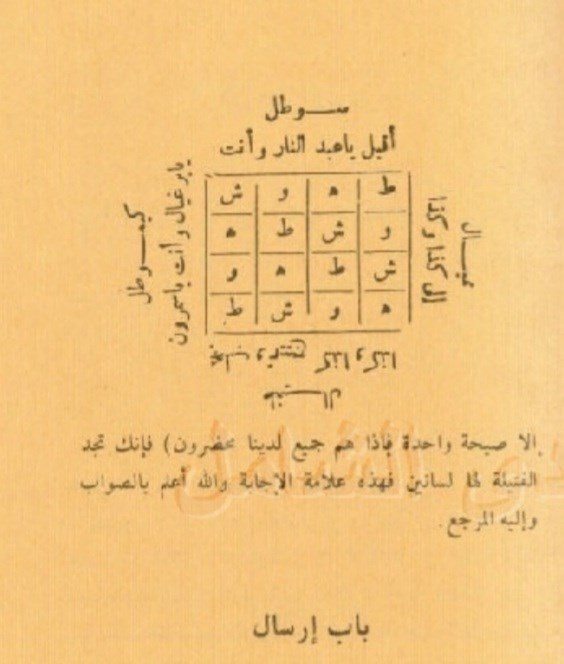 ســوطل
أقبل ياعبد النار وأنت
ش و ه ط
ه ط ش و
و ه ط ش
ط ش و ه
يابرغيال وأنت ياسمرون
كيمــوطل
إلى كذا وكذا
كذا وكذا
إلا صيحة واحدة فإذا هم جميع لدينا محضرون) فإنك تجد
الفتيلة لها لسانين فهذه علامة الإجابة والله أعلم بالصواب
وإليه المرجع.
باب إرسال